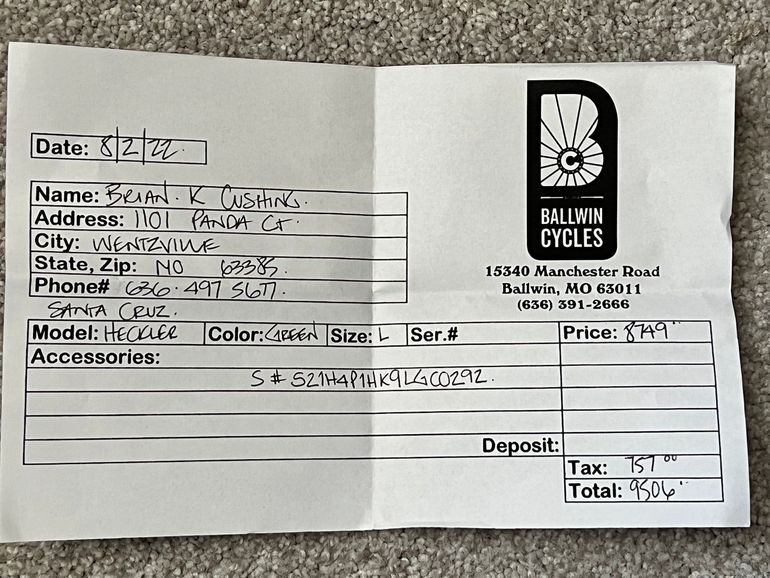 Date: 8/2/22.
Name: BRIAN. K CUSHING.
Address: 1101 PANDA CT.
City: WENTZVILLE
State, Zip: MO 63385.
Phone# 636.497 5677.
SANTA CRUZ.
B
C
BALLWIN
CYCLES
15340 Manchester Road
Ballwin, MO 63011
(636) 391-2666
Model: HECKLER Color: GREEN Size: L Ser.# Price: 8749"
Accessories:
S# S21H4P1HK9LGC0292.
Deposit:
Tax: 757 00
Total: 9506"